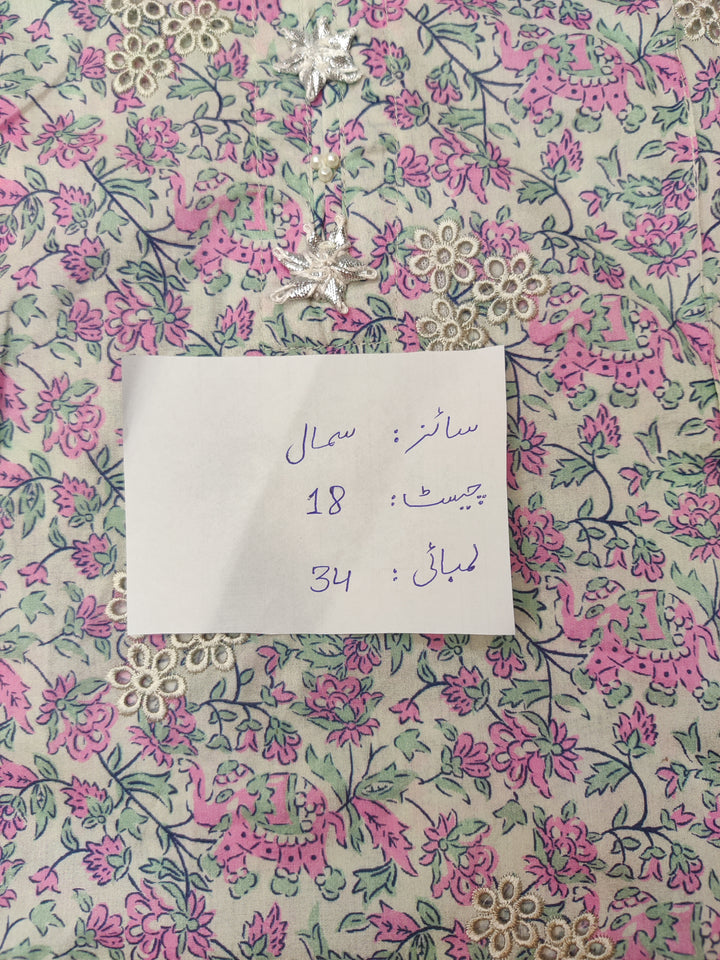 سائز: سمال
چیسٹ: 18
لمبائی: 34